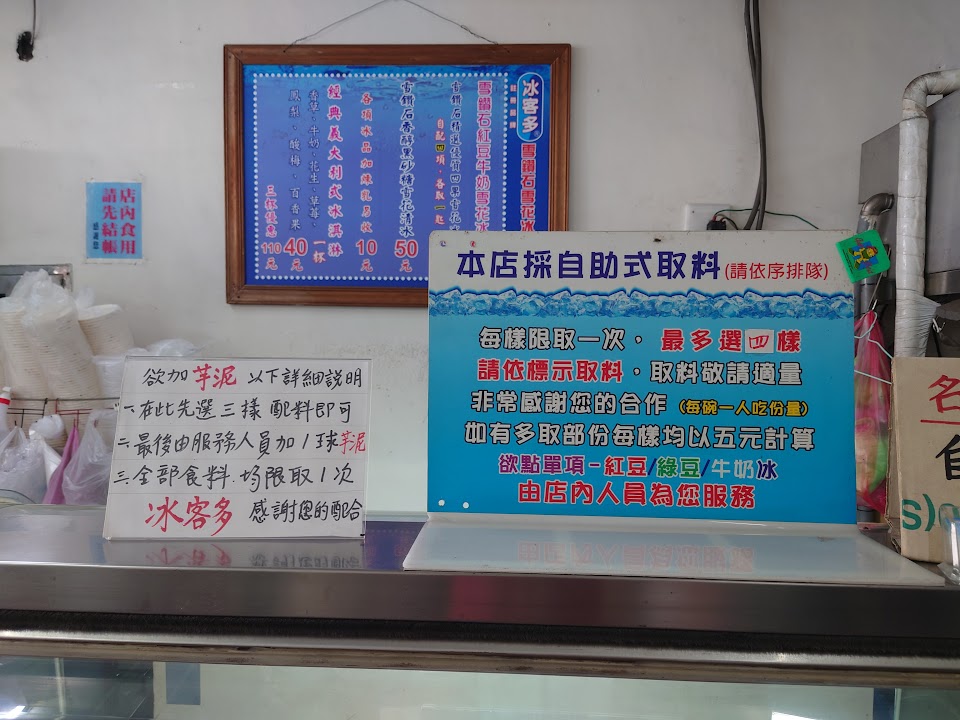 冰客多
雪鑽石雪花冰
雪鑽石紅豆牛奶雪花冰
雪鑽石精選優質四果雪花冰
自配四項，各取一匙
雪鑽石香醇黑砂糖雪花清冰
50元
各項冰品加煉乳另收
10元
經典義大利式冰淇淋
一杯
40元
香草、牛奶、花生、草莓、
鳳梨、酸梅、百香果
三杯優惠
110元
店內食用
請先結帳
感謝您
本店採自助式取料(請依序排隊)
每樣限取一次， 最多選四樣
請依標示取料，取料敬請適量
非常感謝您的合作 (每碗一人吃份量)
如有多取部份每樣均以五元計算
欲點單項-紅豆/綠豆/牛奶冰
由店內人員為您服務
欲加芋泥 以下詳細說明
一、在此先選三樣 配料即可
二、最後由服務人員加1球芋泥
三、全部食料.均限取1次
冰客多 感謝您的配合
名
自
S)